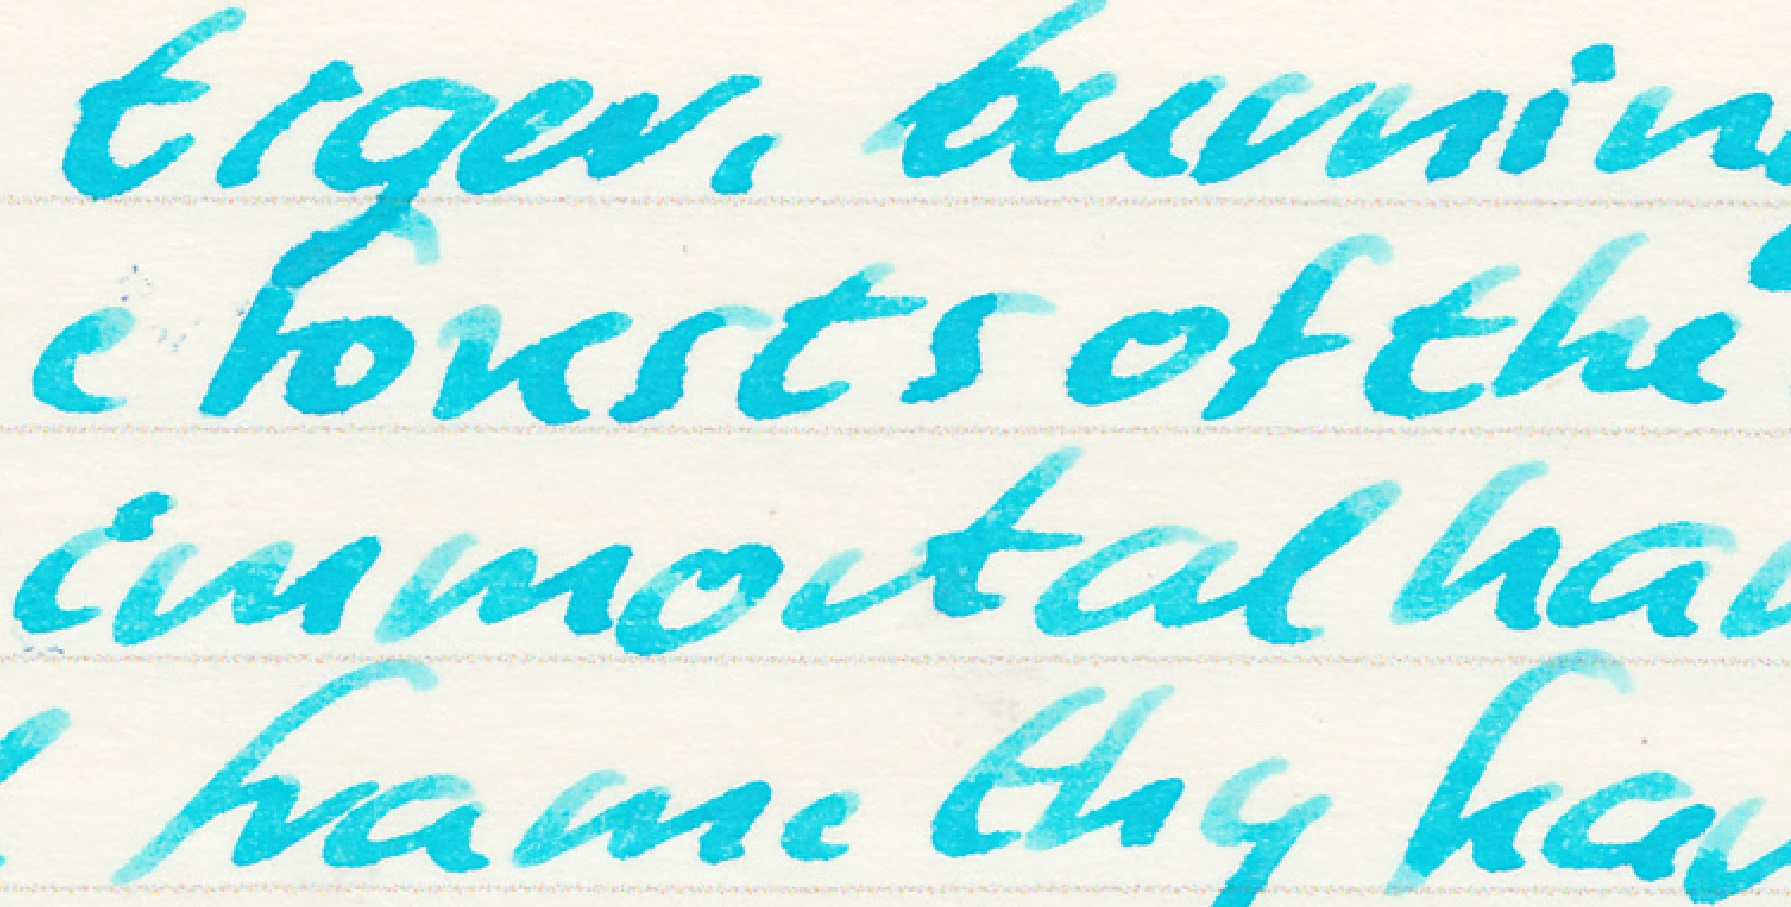 tiger, burning
e forests of the
immortal han
frame thy